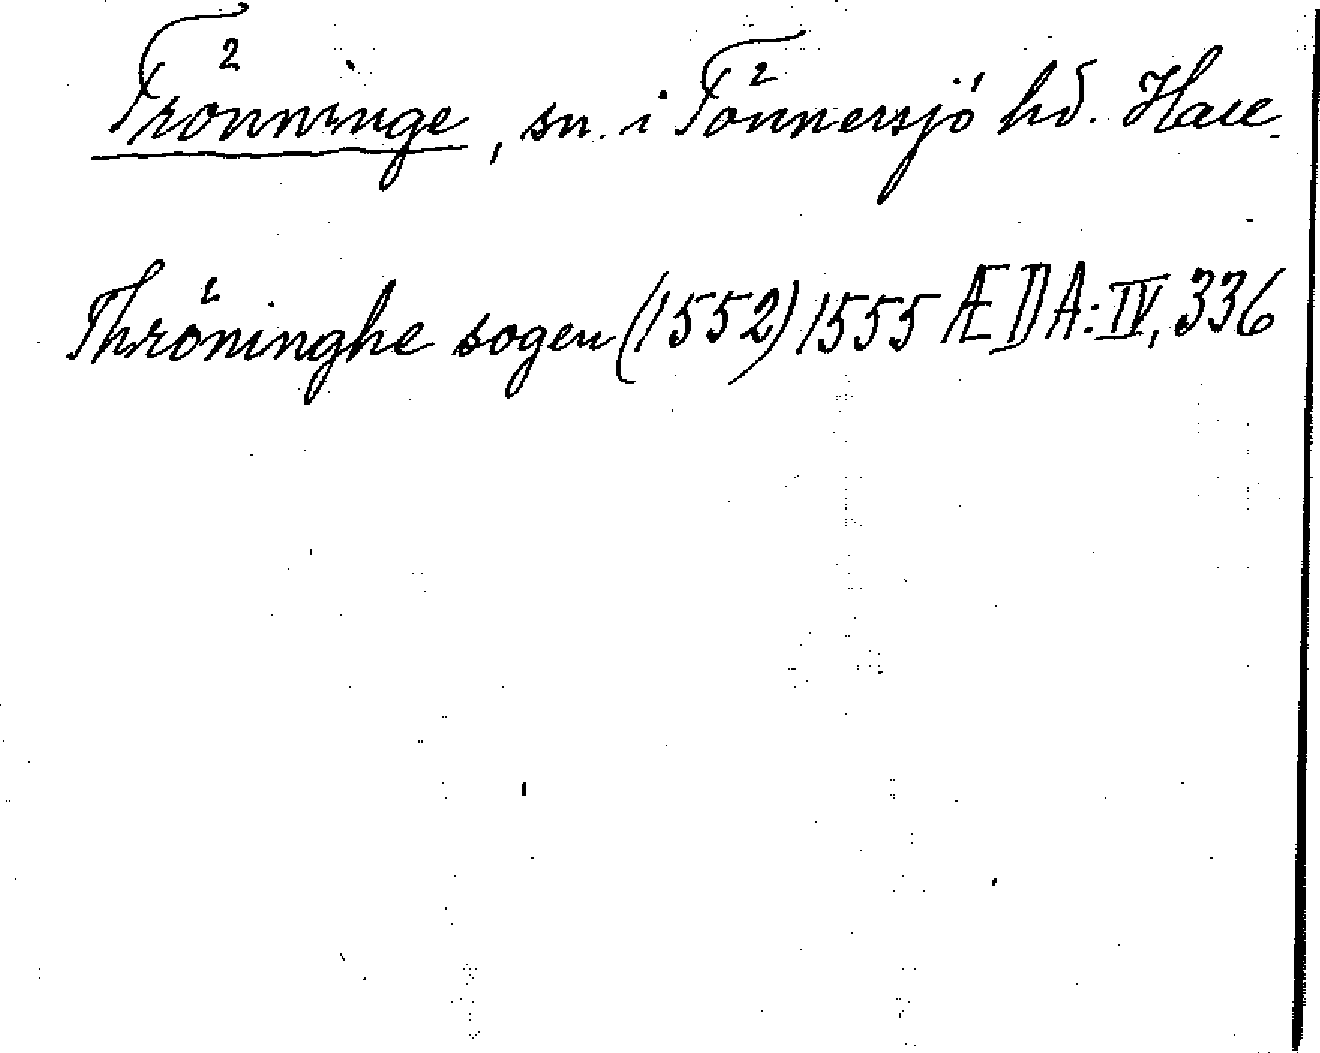 Trönninge, sn. i Tönnersjö hd. Hall.
Thröninghe sogen (1552) 1555 ÆDA: IV, 336